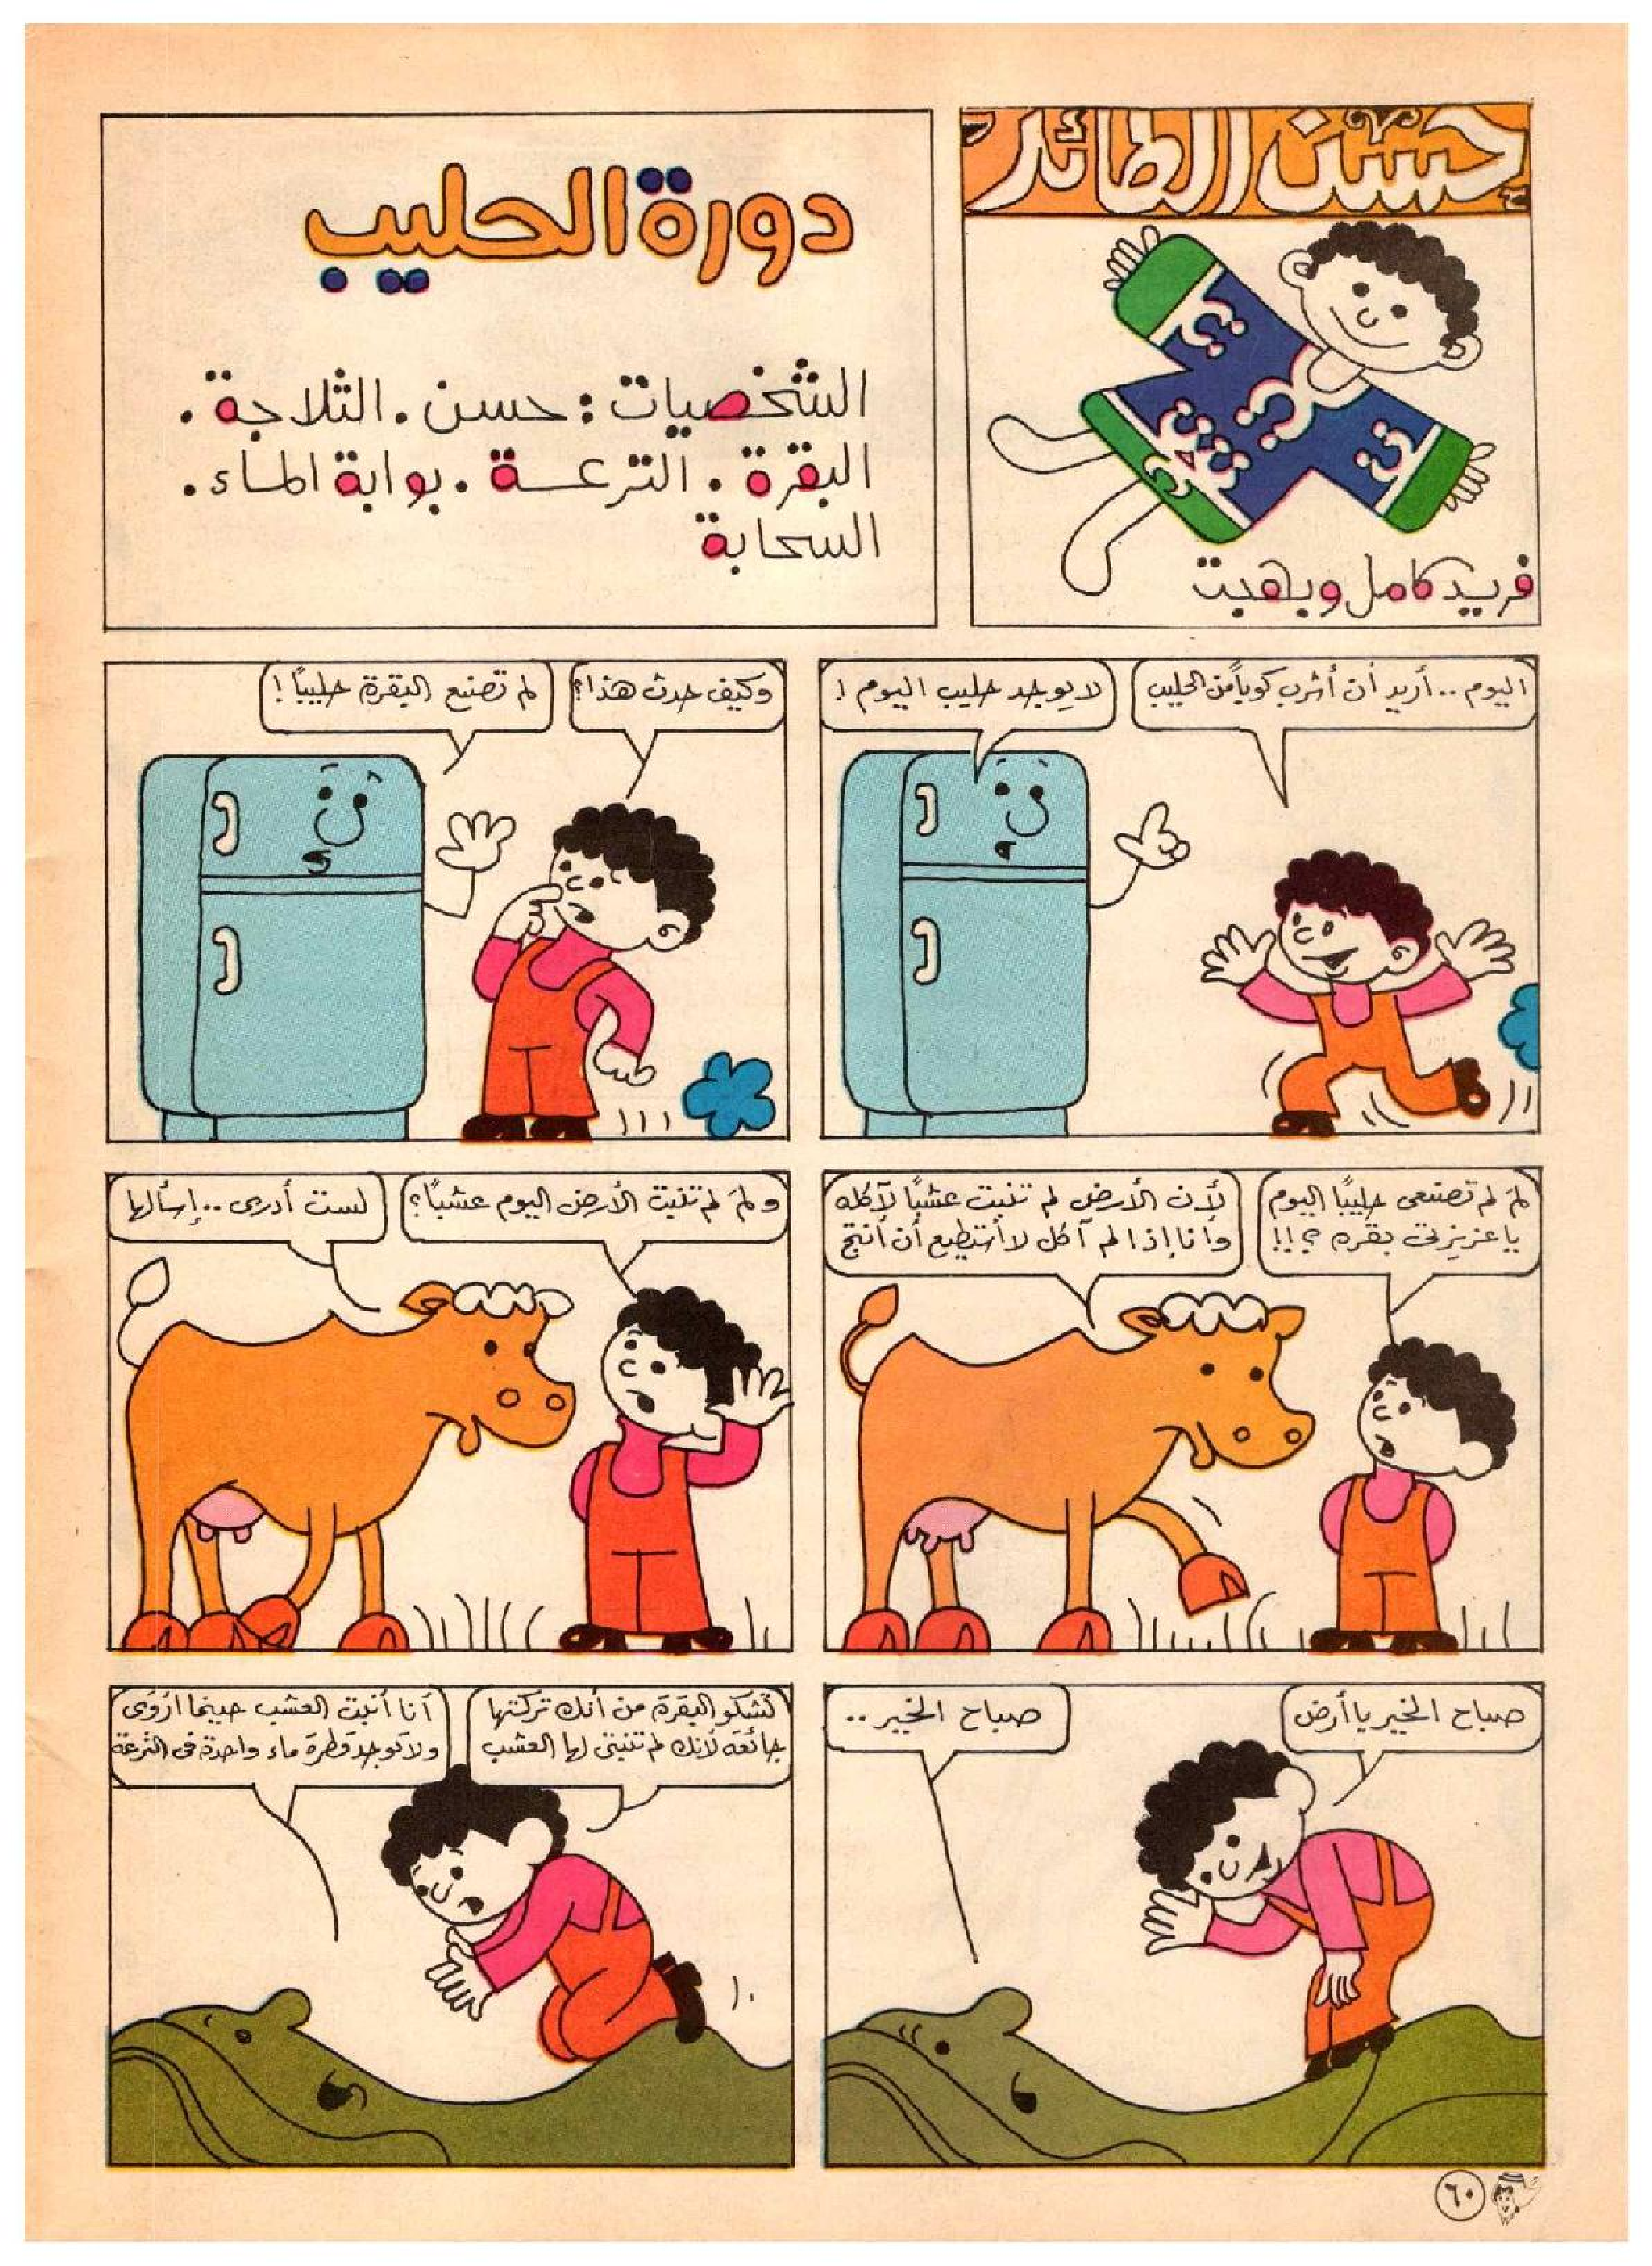 حسن الطائر
فريد كامل وبهجت
دورة الحليب
الشخصيات : حسن . الثلاجة .
البقرة . الترعة . بوابة الماء .
السحابة
اليوم .. أريد أن أشرب كوباً من الحليب
لا يوجد حليب اليوم !
وكيف حدث هذا؟
لم تصنع البقرة حليباً !
لمَ لم تصنعى حليبًا اليوم
يا عزيزتى بقره ؟!!
لأن الأرض لم تنبت عشبًا لآكله
وأنا إذا لم آكل لا أستطيع أن أنتج
ولمَ لم تنبت الأرض اليوم عشبًا؟
لست أدرى .. إسألها
صباح الخير يا أرض
صباح الخير ..
تشكو البقرة من أنك تركتها
جائعة لأنك لم تنبتى لها العشب
أنا أنبت العشب حينما اُروَى
ولا توجد قطرة ماء واحدة فى الترعة
٦٠